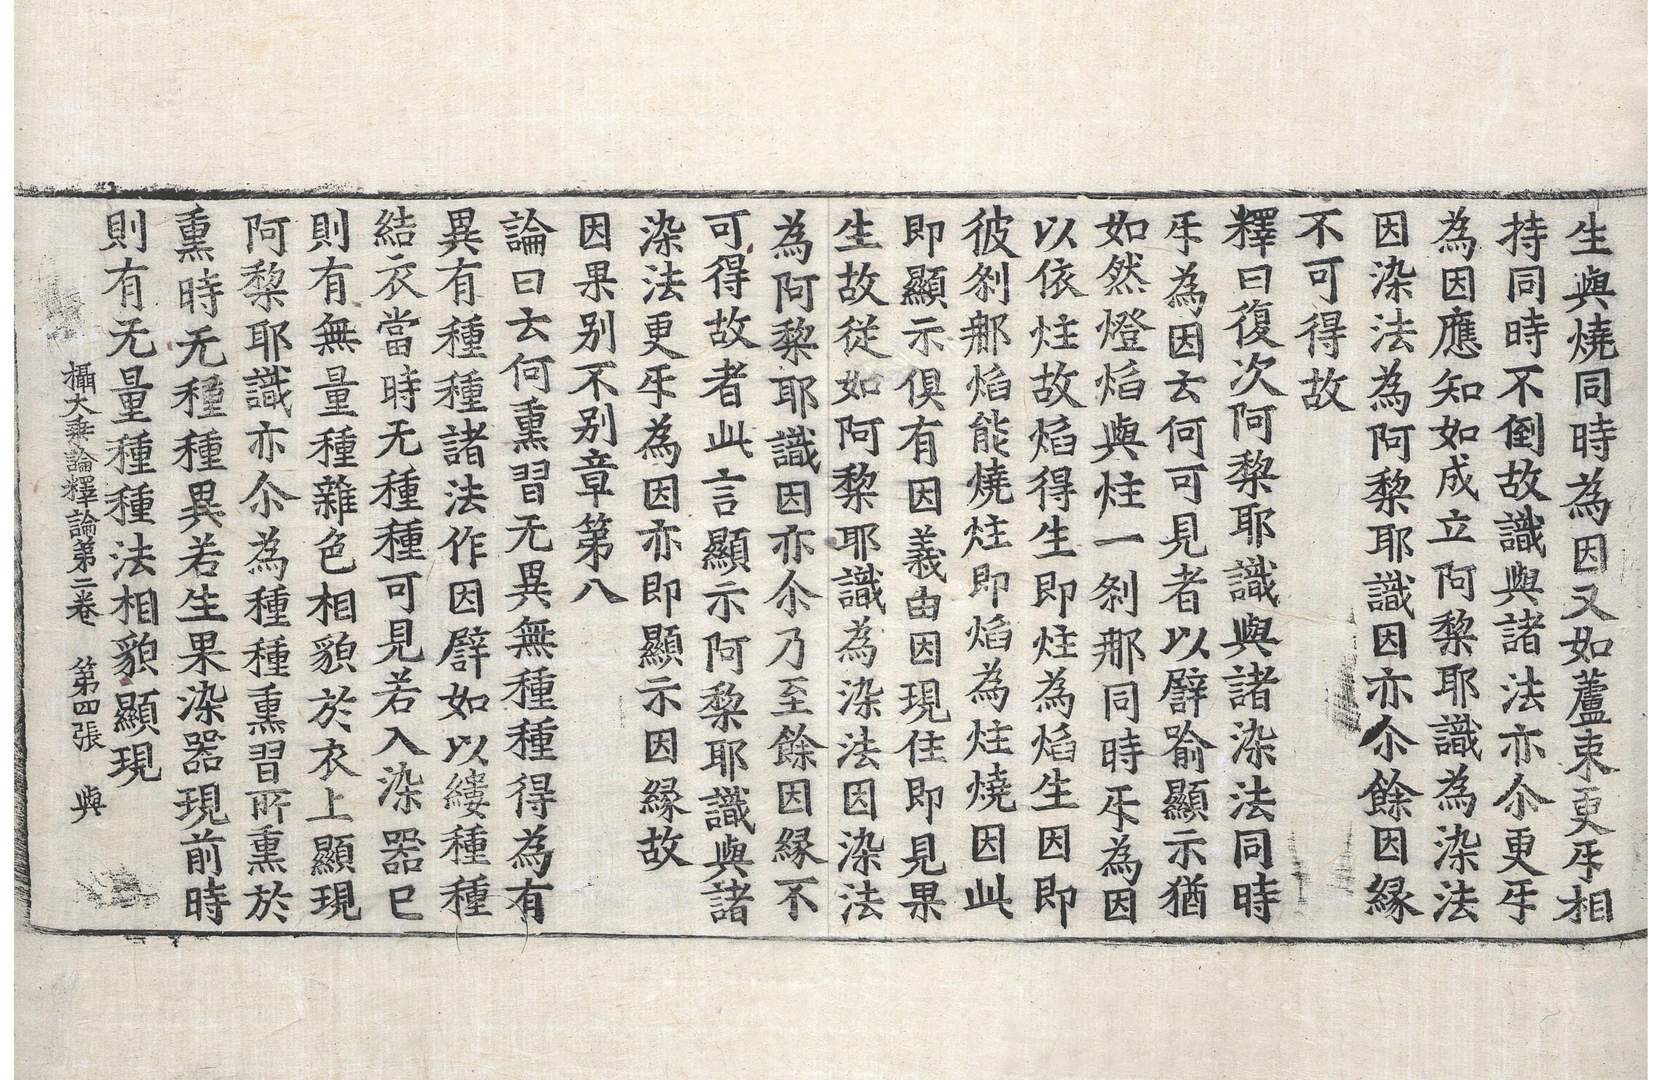 生與燒同時為因又如蘆束更㸦相
持同時不倒故識與諸法亦尒更㸦
為因應知如成立阿黎耶識為染法
因染法為阿黎耶識因亦尒餘因緣
不可得故
釋曰復次阿黎耶識與諸染法同時
㸦為因云何可見者以譬喻顯示猶
如然燈焰與炷一剎那同時㸦為因
以依炷故焰得生即炷為焰生因即
彼剎那焰能燒炷即焰為炷燒因此
即顯示俱有因義由因現住即見果
生故從如阿黎耶識為染法因染法
為阿黎耶識因亦尒乃至餘因緣不
可得故者此言顯示阿黎耶識與諸
染法更㸦為因亦即顯示因緣故
因果別不別章第八
論曰云何熏習无異無種種得為有
異有種種諸法作因譬如以縷種種
結衣當時无種種可見若入染器已
則有無量種種雜色相貌於衣上顯現
阿黎耶識亦尒為種種熏習所熏於
熏時无種種異若生果染器現前時
則有无量種種法相貌顯現
攝大乘論釋論第二卷 第四張 與